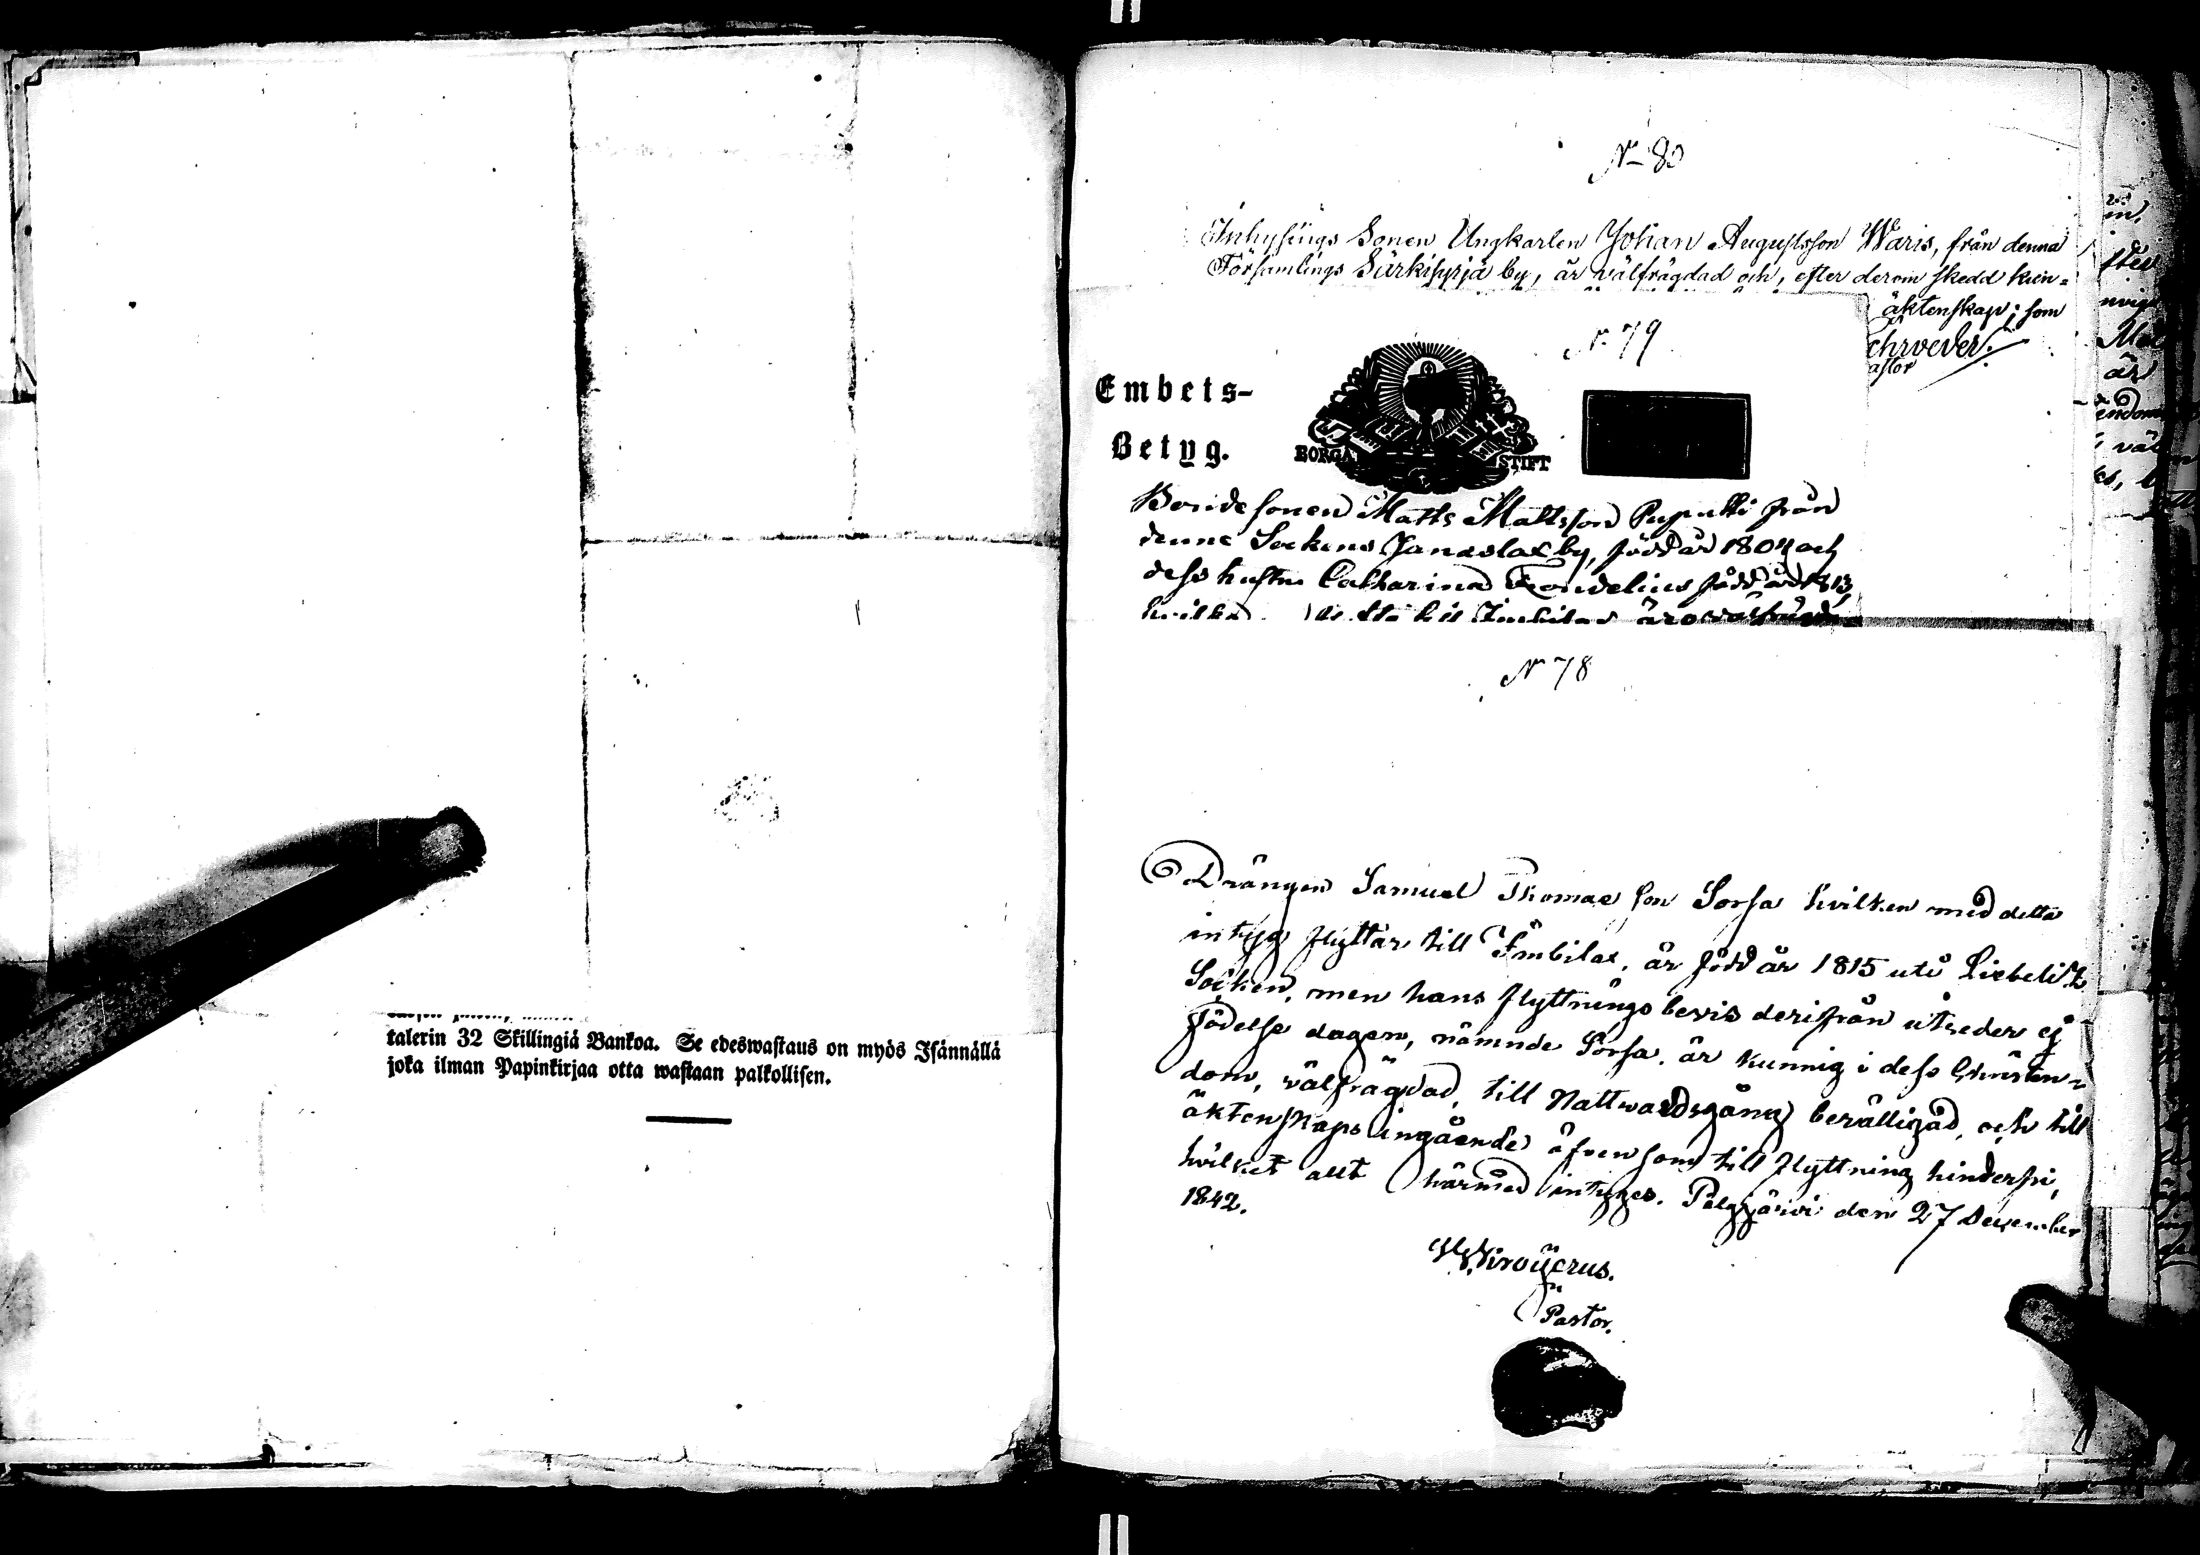 talerin 32 Skillingiä Bankoa. Se edeswastaus on myös Isännällä
joka ilman Papinkirjaa otta wastaan palkollisen.
No 80
Inhysings Sonen Ungkarlen Johan Augustsson Waris, från denna
Församlings Särkisyrjä by, är välfrägdad och, efter derom skedd kun-
äktenskap; som
astor
No 79
Embets-
Betyg.
BORGÅ STIFT
Bondesonen Matts Mattsson Puputti från
denne Sockens Janaslax by, född år 1804 och
dess hustru Catharina Fondelius född år 1813,
hvilka
No 78
Drängen Samuel Thomas son Sorsa hvilken med detta
intyg flyttar till Imbilax, är född år 1815 uti Liebelitz
Socken, men hans flyttnings bevis derifrån utreder ej
födelse dagen, nämnde Sorsa, är kunnig i dess Christen-
dom, välfrägdad, till Nattwardsgång berättigad, och till
äktenskaps ingående äfvensom till flyttning hindersfri,
hvilket allt härmed intyges. Pelgjärvi den 27 December
1842.
Pastor.